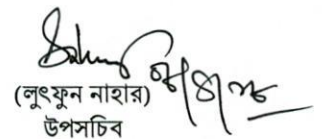 (লুৎফুন নাহার)
উপসচিব